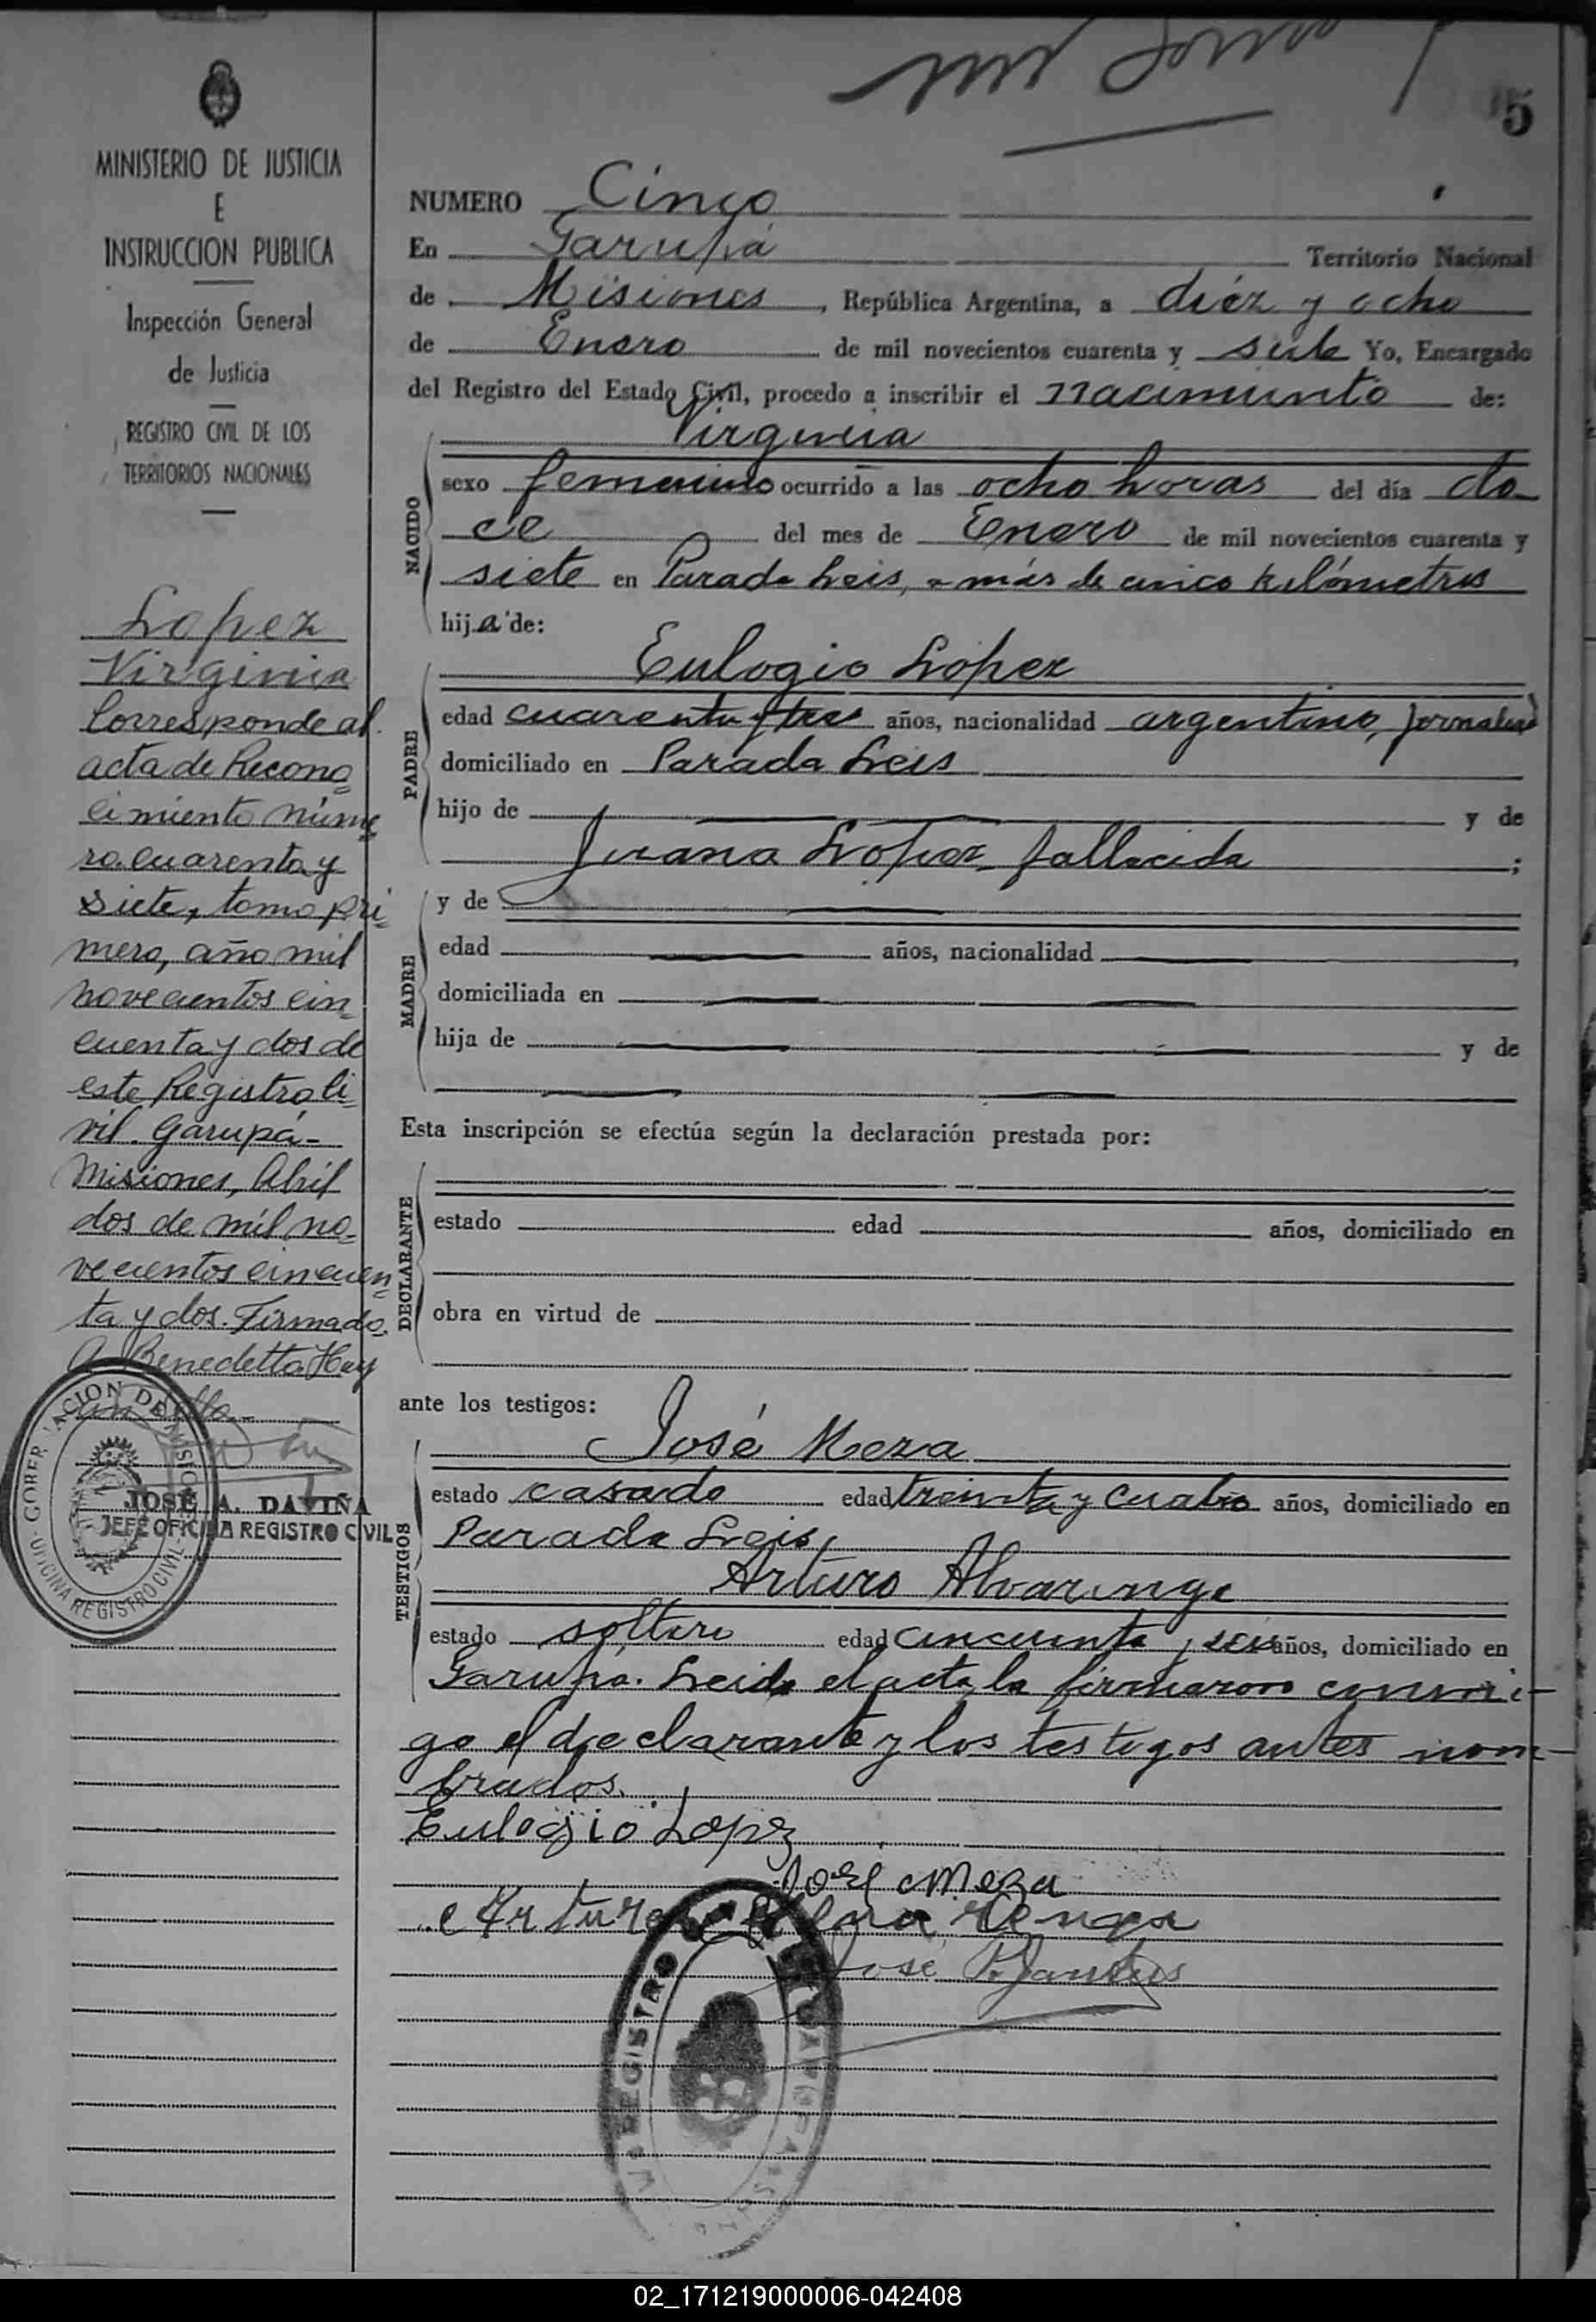 5
MINISTERIO DE JUSTICIA
E
INSTRUCCION PUBLICA
Inspección General
de Justicia
REGISTRO CIVIL DE LOS
TERRITORIOS NACIONALES
Lopez
Virginia
Corresponde al
acta de Recono=
cimiento núme=
ro cuarenta y
siete, tomo pri=
mero, año mil
novecientos cin=
cuenta y dos de
este Registro Ci=
vil. Garupá-
Misiones, Abril
dos de mil no=
vecientos cincuen=
ta y dos. Firmado.
A. Benedetto Hay
un sello-
GOBERNACION DE MISIONES
OFICINA REGISTRO CIVIL
JOSÉ A. DAVIÑA
JEFE OFICINA REGISTRO CIVIL
NUMERO Cinco
En Garupá Territorio Nacional
de Misiones, República Argentina, a diéz y ocho
de Enero de mil novecientos cuarenta y siete Yo, Encargado
del Registro del Estado Civil, procedo a inscribir el nacimiento de:
NACIDO
Virginia
sexo femenino ocurrido a las ocho horas del día do
ce del mes de Enero de mil novecientos cuarenta y
siete en Parada Leis, a más de cinco kilómetros
hija de:
PADRE
Eulogio López
edad cuarenta y tres años, nacionalidad argentino, jornalero
domiciliado en Parada Leis
hijo de y de
Juana López fallecida ;
MADRE
y de
edad años, nacionalidad ,
domiciliada en
hija de y de
Esta inscripción se efectúa según la declaración prestada por:
DECLARANTE
estado edad años, domiciliado en
obra en virtud de
ante los testigos:
TESTIGOS
José Meza
estado casado edad treinta y cuatro años, domiciliado en
Parada Leis,
Arturo Alvarenga
estado soltero edad cincuenta y seis años, domiciliado en
Garupá. Leida el acta, la firmaron conmi-
go el declarante y los testigos antes nom-
brados.
Eulogio Lopez
José Meza
Arturo Alvarenga
José
REGISTRO
02_171219000006-042408